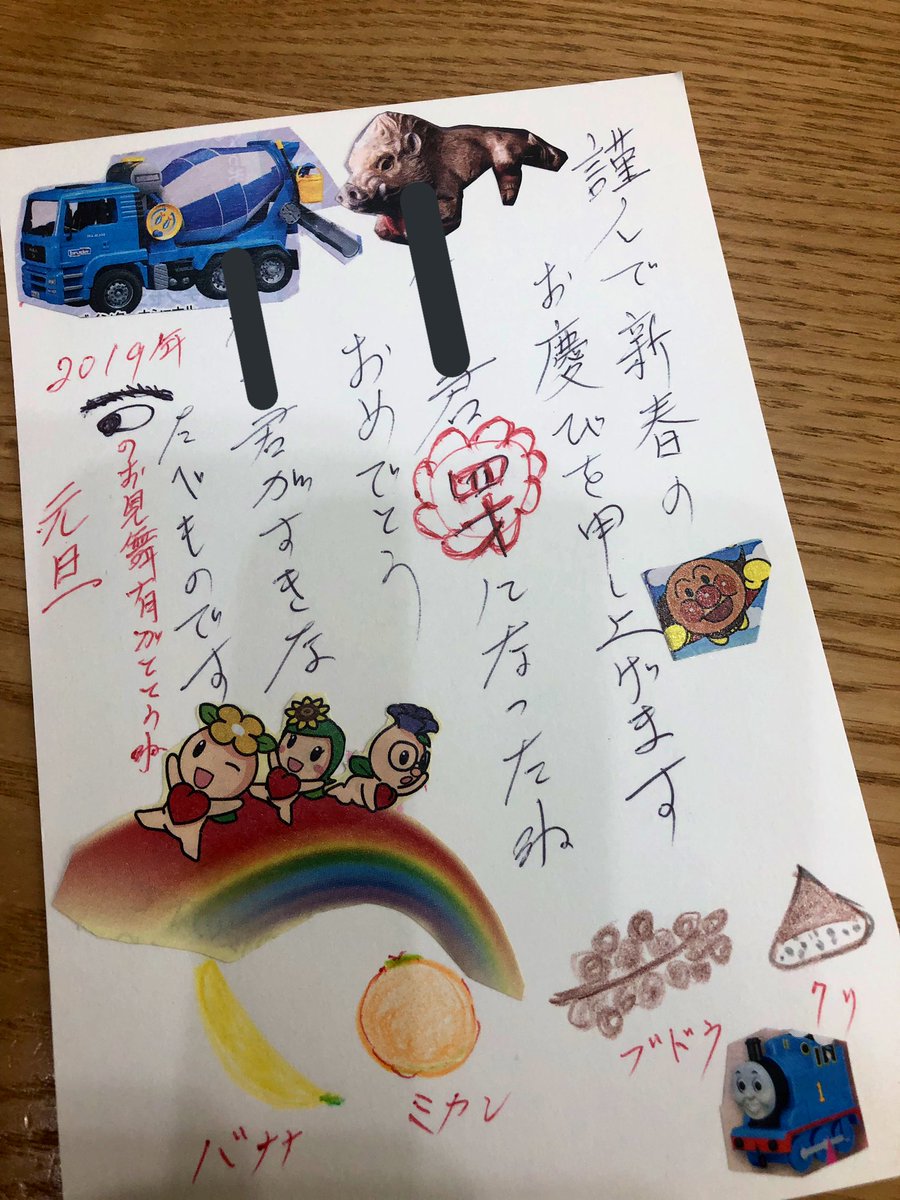 謹んで新春の
お慶びを申し上げます
君四才になったね
おめでとう
君がすきな
たべものです
のお見舞有がとうね
2019年
元旦
クリ
ブドウ
ミカン
バナナ
1